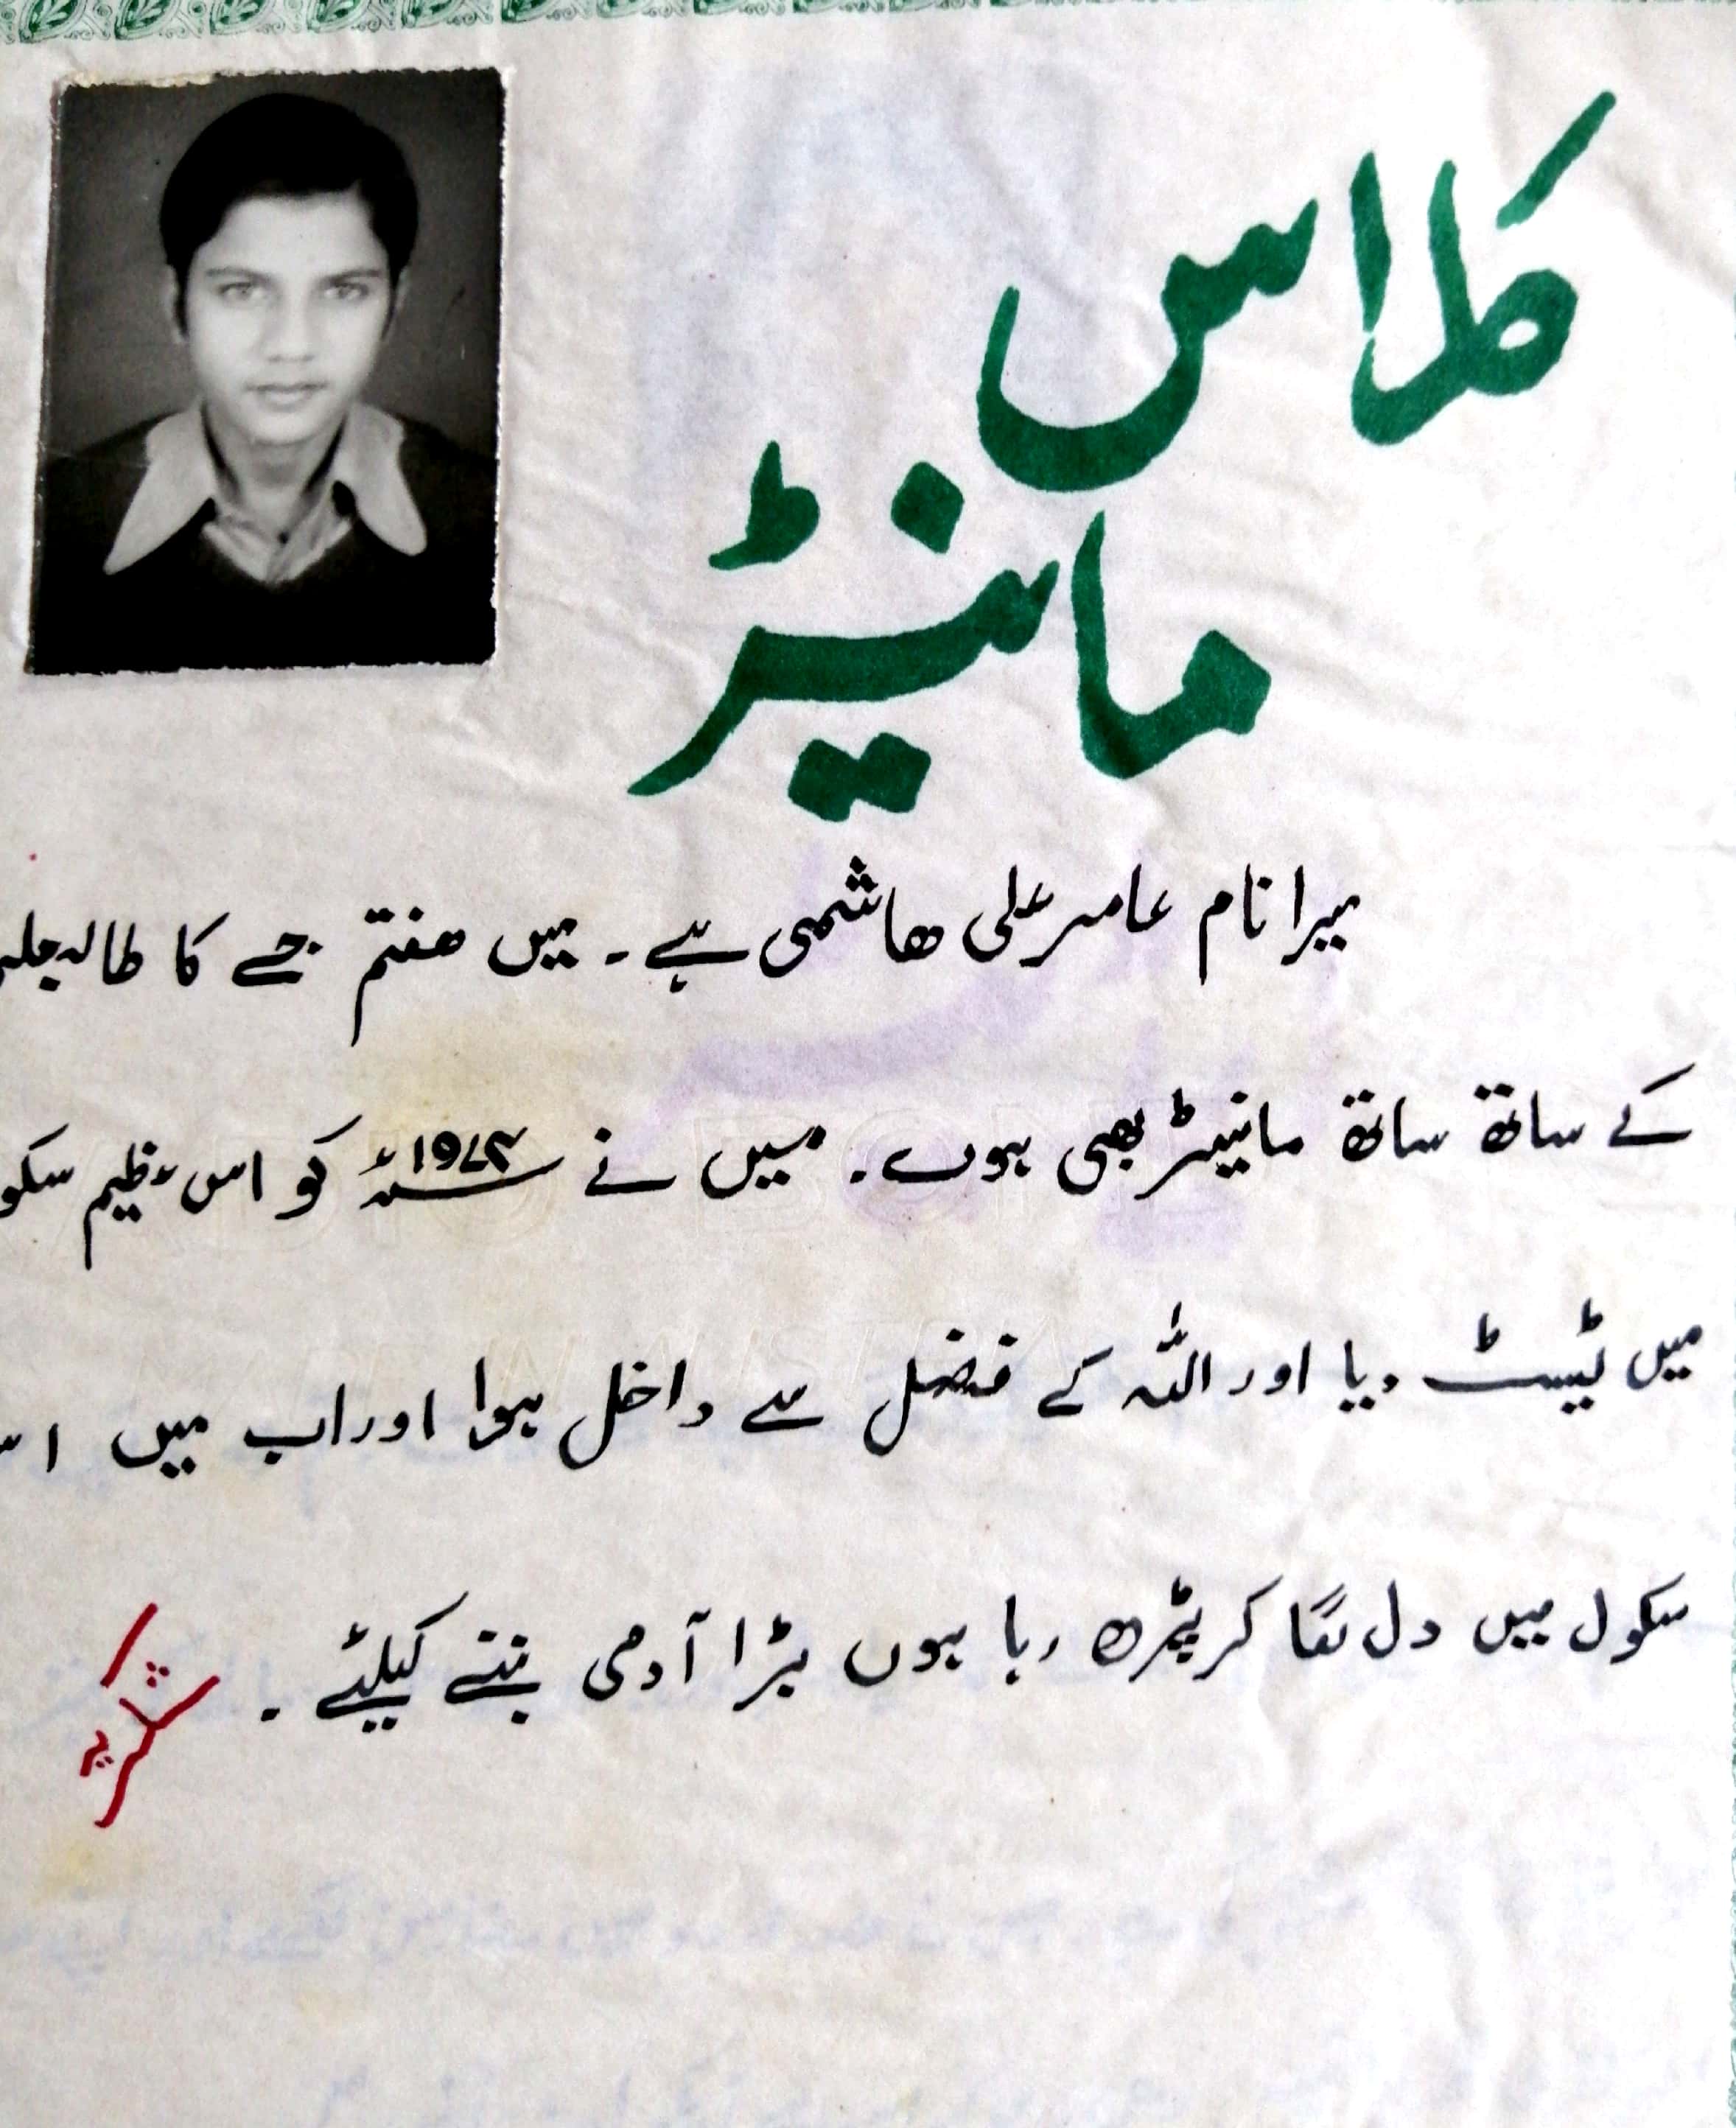 کلاس
مانیٹر
میرا نام عامر علی ھاشمی ہے۔ میں ھفتم جے کا طالبعلم
کے ساتھ ساتھ مانیٹر بھی ہوں۔ میں نے ۱۹۷۳ء کو اس عظیم سکو
میں ٹیسٹ دیا اور اللہ کے فضل سے داخل ہوا اور اب میں اس
سکول میں دل لگا کر پڑھ رہا ہوں بڑا آدمی بننے کیلئے ۔
شکریہ